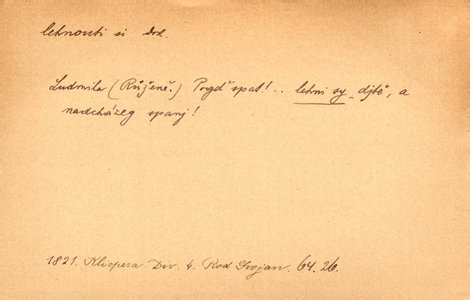 lehnouti si dok.
Ludmila (Růženě.) Pogď spat!.. lehni sy _ djtě, a
nadcházeg spanj!
1821. Klicpera Div. 4. Rod Svojan. 64. 26.